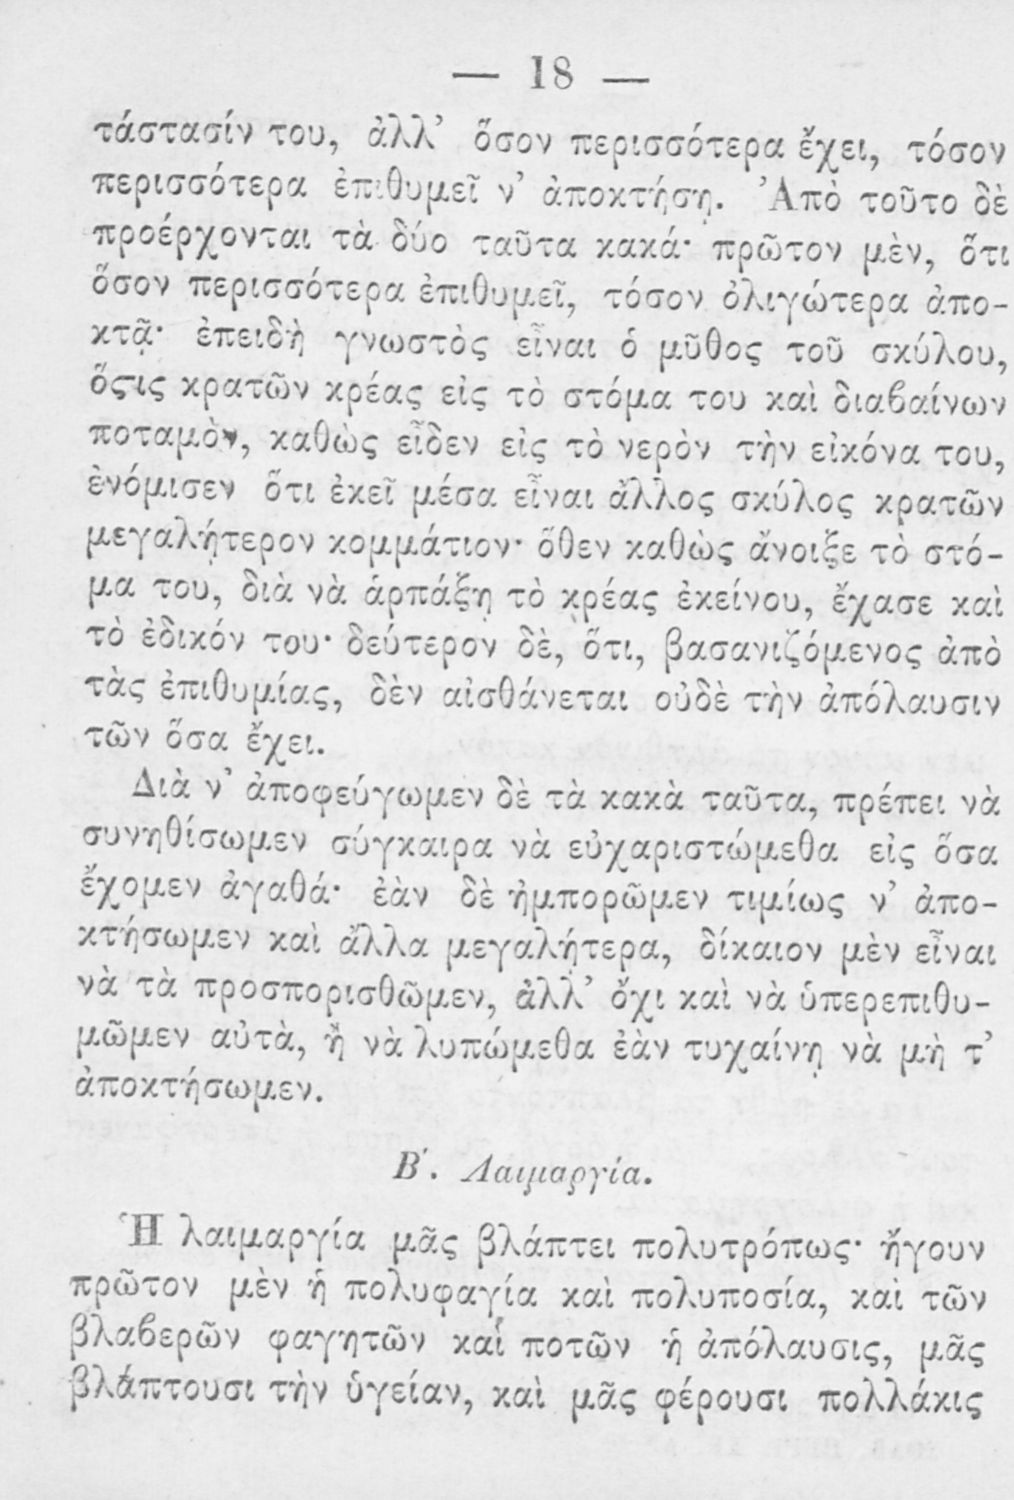 — 18 —
τάστασίν του, ἀλλ’ ὅσον περισσότερα ἔχει, τόσον
περισσότερα ἐπιθυμεῖ ν’ ἀποκτήσῃ. Ἀπὸ τοῦτο δὲ
προέρχονται τὰ δύο ταῦτα κακά· πρῶτον μὲν, ὅτι
ὅσον περισσότερα ἐπιθυμεῖ, τόσον ὀλιγώτερα ἀπο-
κτᾷ· ἐπειδὴ γνωστὸς εἶναι ὁ μῦθος τοῦ σκύλου,
ὅςις κρατῶν κρέας εἰς τὸ στόμα του καὶ διαβαίνων
ποταμὸν, καθὼς εἶδεν εἰς τὸ νερὸν τὴν εἰκόνα του,
ἐνόμισεν ὅτι ἐκεῖ μέσα εἶναι ἄλλος σκύλος κρατῶν
μεγαλῄτερον κομμάτιον· ὅθεν καθὼς ἄνοιξε τὸ στό-
μα του, διὰ νὰ ἁρπάξῃ τὸ κρέας ἐκείνου, ἔχασε καὶ
τὸ ἐδικόν του· δεύτερον δὲ, ὅτι, βασανιζόμενος ἀπὸ
τὰς ἐπιθυμίας, δὲν αἰσθάνεται οὐδὲ τὴν ἀπόλαυσιν
τῶν ὅσα ἔχει.
Διὰ ν’ ἀποφεύγωμεν δὲ τὰ κακὰ ταῦτα, πρέπει νὰ
συνηθίσωμεν σύγκαιρα νὰ εὐχαριστώμεθα εἰς ὅσα
ἔχομεν ἀγαθά· ἐὰν δὲ ἠμπορῶμεν τιμίως ν’ ἀπο-
κτήσωμεν καὶ ἄλλα μεγαλῄτερα, δίκαιον μὲν εἶναι
νὰ τὰ προσπορισθῶμεν, ἀλλ’ ὄχι καὶ νὰ ὑπερεπιθυ-
μῶμεν αὐτὰ, ἢ νὰ λυπώμεθα ἐὰν τυχαίνῃ νὰ μὴ τ’
ἀποκτήσωμεν.
Β΄. Λαιμαργία.
Ἡ λαιμαργία μᾶς βλάπτει πολυτρόπως· ἤγουν
πρῶτον μὲν ἡ πολυφαγία καὶ πολυποσία, καὶ τῶν
βλαβερῶν φαγητῶν καὶ ποτῶν ἡ ἀπόλαυσις, μᾶς
βλάπτουσι τὴν ὑγείαν, καὶ μᾶς φέρουσι πολλάκις